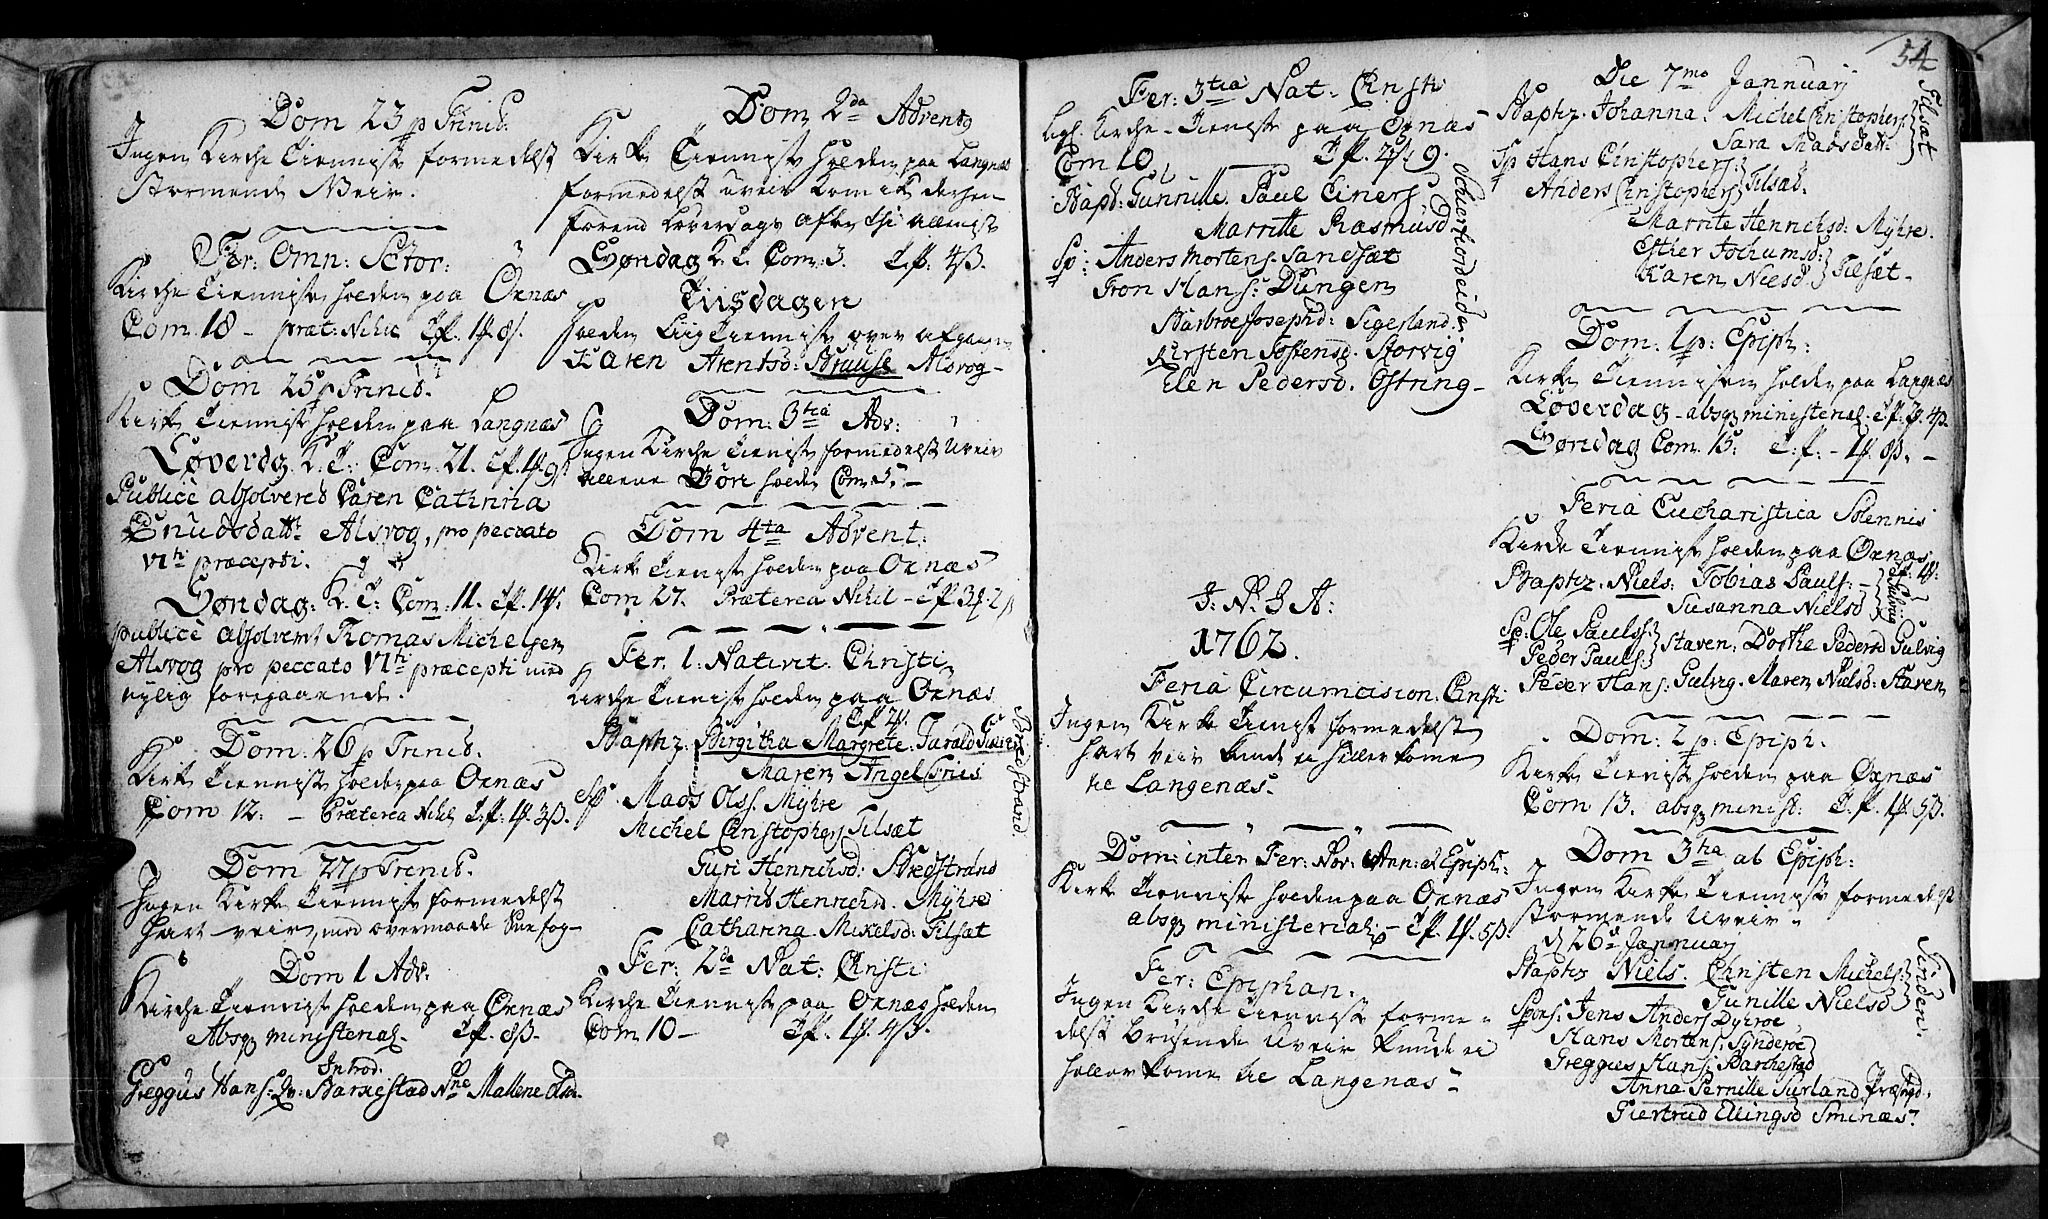 Dom 23 p Trinit.
Ingen Kirche Tienniste formedelst
Stormende Veir.
Fer: Omn: Sctor:
Kirche Tienniste holden paa Oxnæs
Com. 18 – præt: Nihil Tf. 1f. 8ß.
Dom 25 p Trinit.
Kirke Tienniste holden paa Langnæs
Løverdg. K. T: Com. 21. Tf. 1f. 9ß
Publicè absolveret Caren Cathrina
Knudsdattr Alsvog, pro peccato
VIti præcepti.
Søndag: K: T: Com: 11. Tf. 1f.
publicè absolveret Thomas Michelsen
Alsvog pro peccato VIti præcepti med
nylig foregaaende.
Dom. 26 p Trinit.
Kirke Tienniste holden paa Oxnæs
Com 12. – Præterea Nihil Tf. 1f. 3ß.
Dom 27 p Trinit.
Ingen Kirke Tienniste formedelst
hart veir, med overmaade Snefog–
Dom 1 Adv.
Kirche Tienniste holden paa Oxnæs
Absq ministerial. Tf. 8ß.
Introd.
Greggus Hans. Qv: Barkestad Nne Mallene Olsd.
Dom 2da Advents
Kirke Tienniste holden paa Langnæs
formedelst uveir kom ik dersen
forend Løverdags Aften thi allenist
Søndag K. T. Com: 3. Tf: 4ß.
Tiisdagen
holden Liig Tienniste over afgangne
Karen Arentsd: Bruuse Alsvog–
Dom: 3tia Adv:
Ingen Kirche Tieniste formedelst Uveir
allene Bøn holden Com 5.–
Dom 4ta Advent:
Kirke Tieniste holden paa Oxnæs
Com 27. Præterea Nihil – Tf 3f. 2ß
Fer. 1: Nativit: Christi
Kirche Tieniste holden paa Oxnæs
Tf 2f.
Baptz. Birgitha Margrete. Harald
Maren Angel Friis
Bredstrand
Sp. Mads Olss. Myhre
Michel Christophers Tilsæt
Guri Henrichsd: Bredstrand
Marrit Henrichsd. Myhre
Catharina. Mikelsd: Tilsæt
Fer: 2da Nat: Christi
Kirche Tienniste paa Oxnæs holden
Com 10 – Tf. 1f. 4ß.
54
Fer: 3tia Nat: Christi
Kirche-Tieniste paa Oxnæs
Com 10. Tf. 2f. 9.
Bapt: Gunnille. Paul Einers.
Marritte Rasmusd
Skierfiordeidet
Sp: Anders Mortens. Sandsæt
Tron Hans: Dungen
Barbroe Josephd: Sigerland.
Kirsten Tostensd. Storvig
Elen Pedersd. Østring–
J: N: J A:
1762.
Feria Circumcision. Christi
Ingen Kirke Tieniste formedelst
hart veir kunde ei heller kome
til Langenæs.
Dom: inter Fer: Nov: Ann: et Epiph:
Kirke Tienniste holden paa Oxnæs
absq ministerial: – Tf. 1f. 5ß.
Fer: Epiphan.
Ingen Kirche Tienniste forme=
delst Brusende Uveir kunde ei
heller kome til Langenæs
Die 7mo Jannuarj
Baptz. Johanna. Michel Christophers.
Sara Madsdattr
Tilsæt
Sp Hans Christophers.
Anders Christophers Tilsæt.
Marrite Henrichsd: Myhre.
Esther Jochumsd:
Karen Nielsd Tilsæt–
Dom: 1 p: Epiph:
Kirke Tiennisten holden paa Langnæs
Løverdag – absq ministerial. Tf. 2f. 4ß.
Søndag Com. 15: T: f. – 1f. 8ß. –
Feria Eucharistica Solennis
Kirche Tienniste holden paa Oxnæs
Tf. 1f.
Baptz. Niels. Tobias Pauls: –
Susanna Nielsd
Gulvig
Sp: Ole Pauls:
Peder Pauls: Staven, Dorthe Pedersd Gulvig
Peder Hans: Gulvig. Maren Nielsd: Staven
Dom: 2 p: Epiph.
Kirke Tieniste holden paa Oxnæs
Com 13. absq minist: T. f. 1f. 5ß.
Dom 3tia ab Epiph:
Ingen Kirke Tienniste formedelst
stormende Uveir.
d 26 Jannuarj
Baptz Niels. Christen Michels
Gunille Nielsd
Tinden
Spons: Jens Anders Dyhrøe,
Hans Mortens: Synderøe
Greggues Hans: Barchestad
Anna Pernille Jurland Præstgd.
Giertrud Ellingsd Sminæs